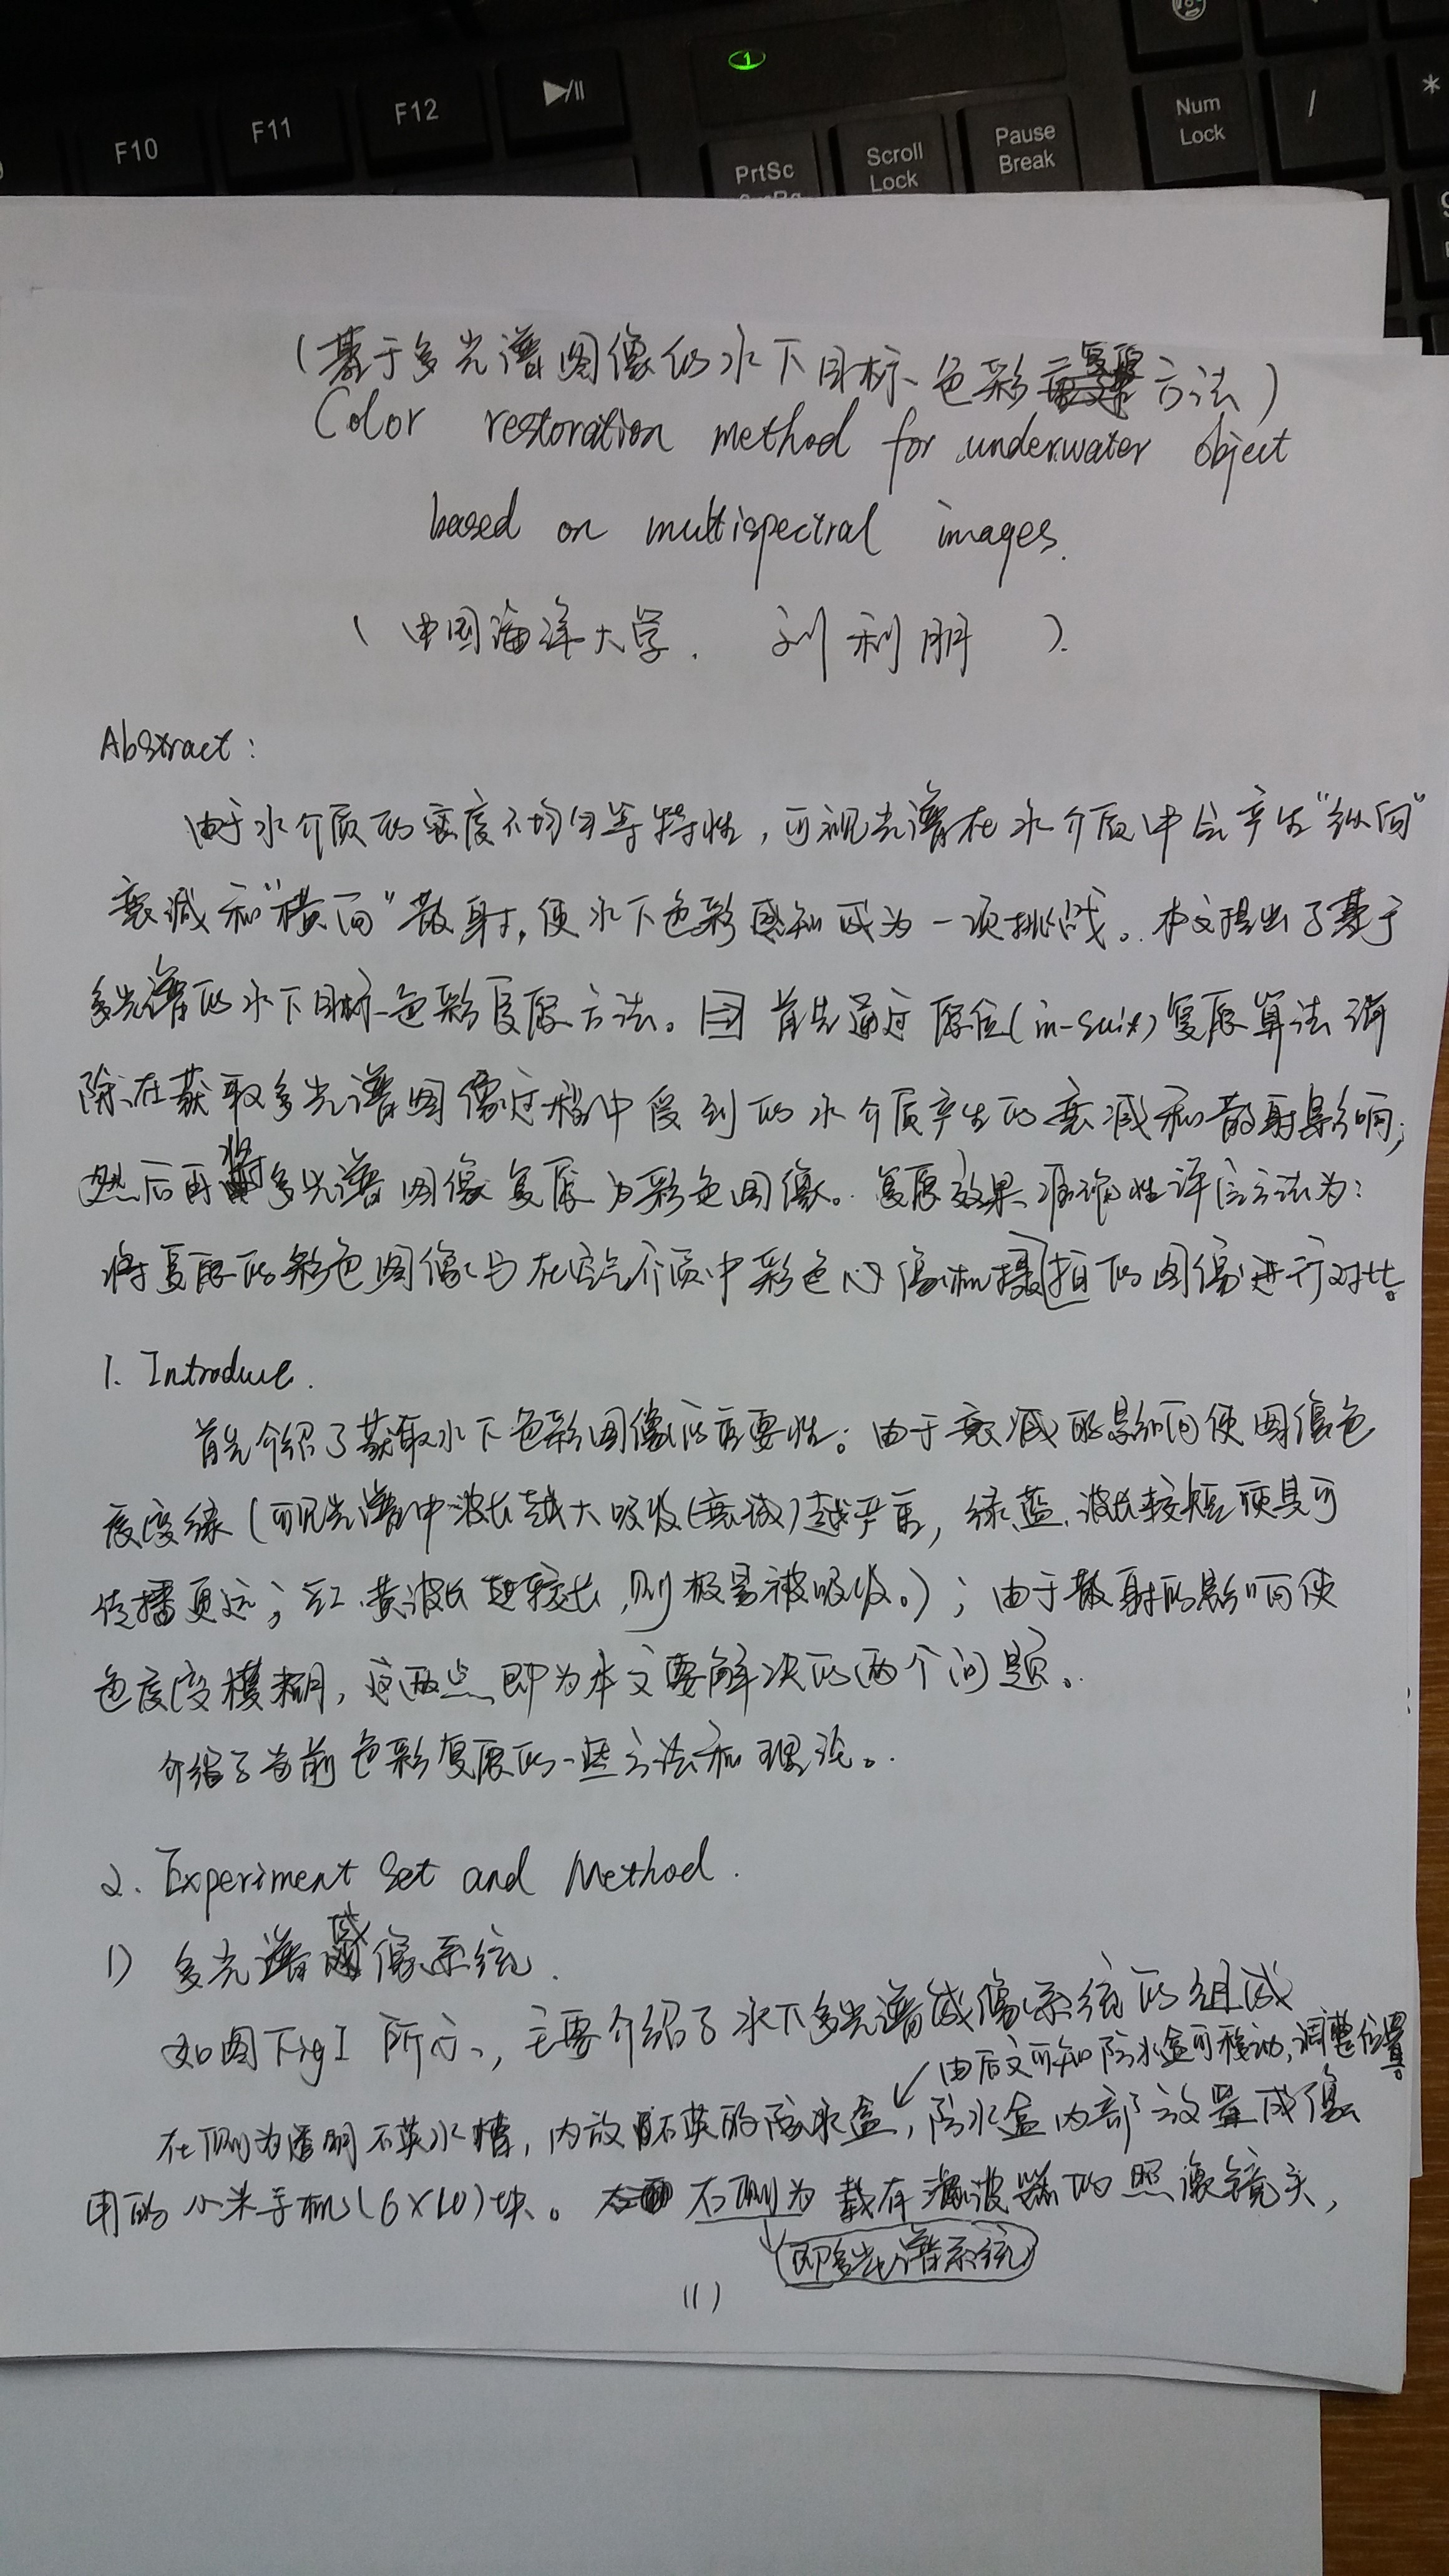 F10 F11 F12
1
PrtSc
Scroll Lock
Pause Break
Num Lock
/
*
(基于多光谱图像的水下目标色彩复原方法)
Color restoration method for underwater object
based on multispectral images.
(中国海洋大学. 刘利朋 ).
Abstract:
由于水介质的密度不均匀等特性,可视光谱在水介质中会产生"纵向"
衰减和"横向"散射,使水下色彩感知成为一项挑战。本文提出了基于
多光谱的水下目标色彩复原方法。首先通过原位(in-suit)复原算法消
除在获取多光谱图像过程中受到的水介质产生的衰减和散射影响;
然后再将多光谱图像复原为彩色图像。复原效果准确性评价方法为:
将复原的彩色图像与在空气介质中彩色像机摄拍的图像进行对比。
1. Introduce.
首先介绍了获取水下色彩图像的重要性。由于衰减的影响使图像色
度变绿(可见光谱中波长越大吸收(衰减)越严重,绿.蓝.波长较短颜色可
传播更远;红.黄波长较长,则极易被吸收。);由于散射的影响使
色度变模糊,这两点即为本文要解决的两个问题。
介绍了当前色彩复原的一些方法和理论。
2. Experiment Set and Method.
1) 多光谱成像系统.
如图Fig1所示,主要介绍了水下多光谱成像系统的组成
由后文可知防水盒可移动,调整位置。
左侧为透明石英水槽,内放石英的防水盒,防水盒内部放置成像
用的小米手机(6×10)块。右侧为载有滤波器的照像镜头,
即多光谱系统
(1)